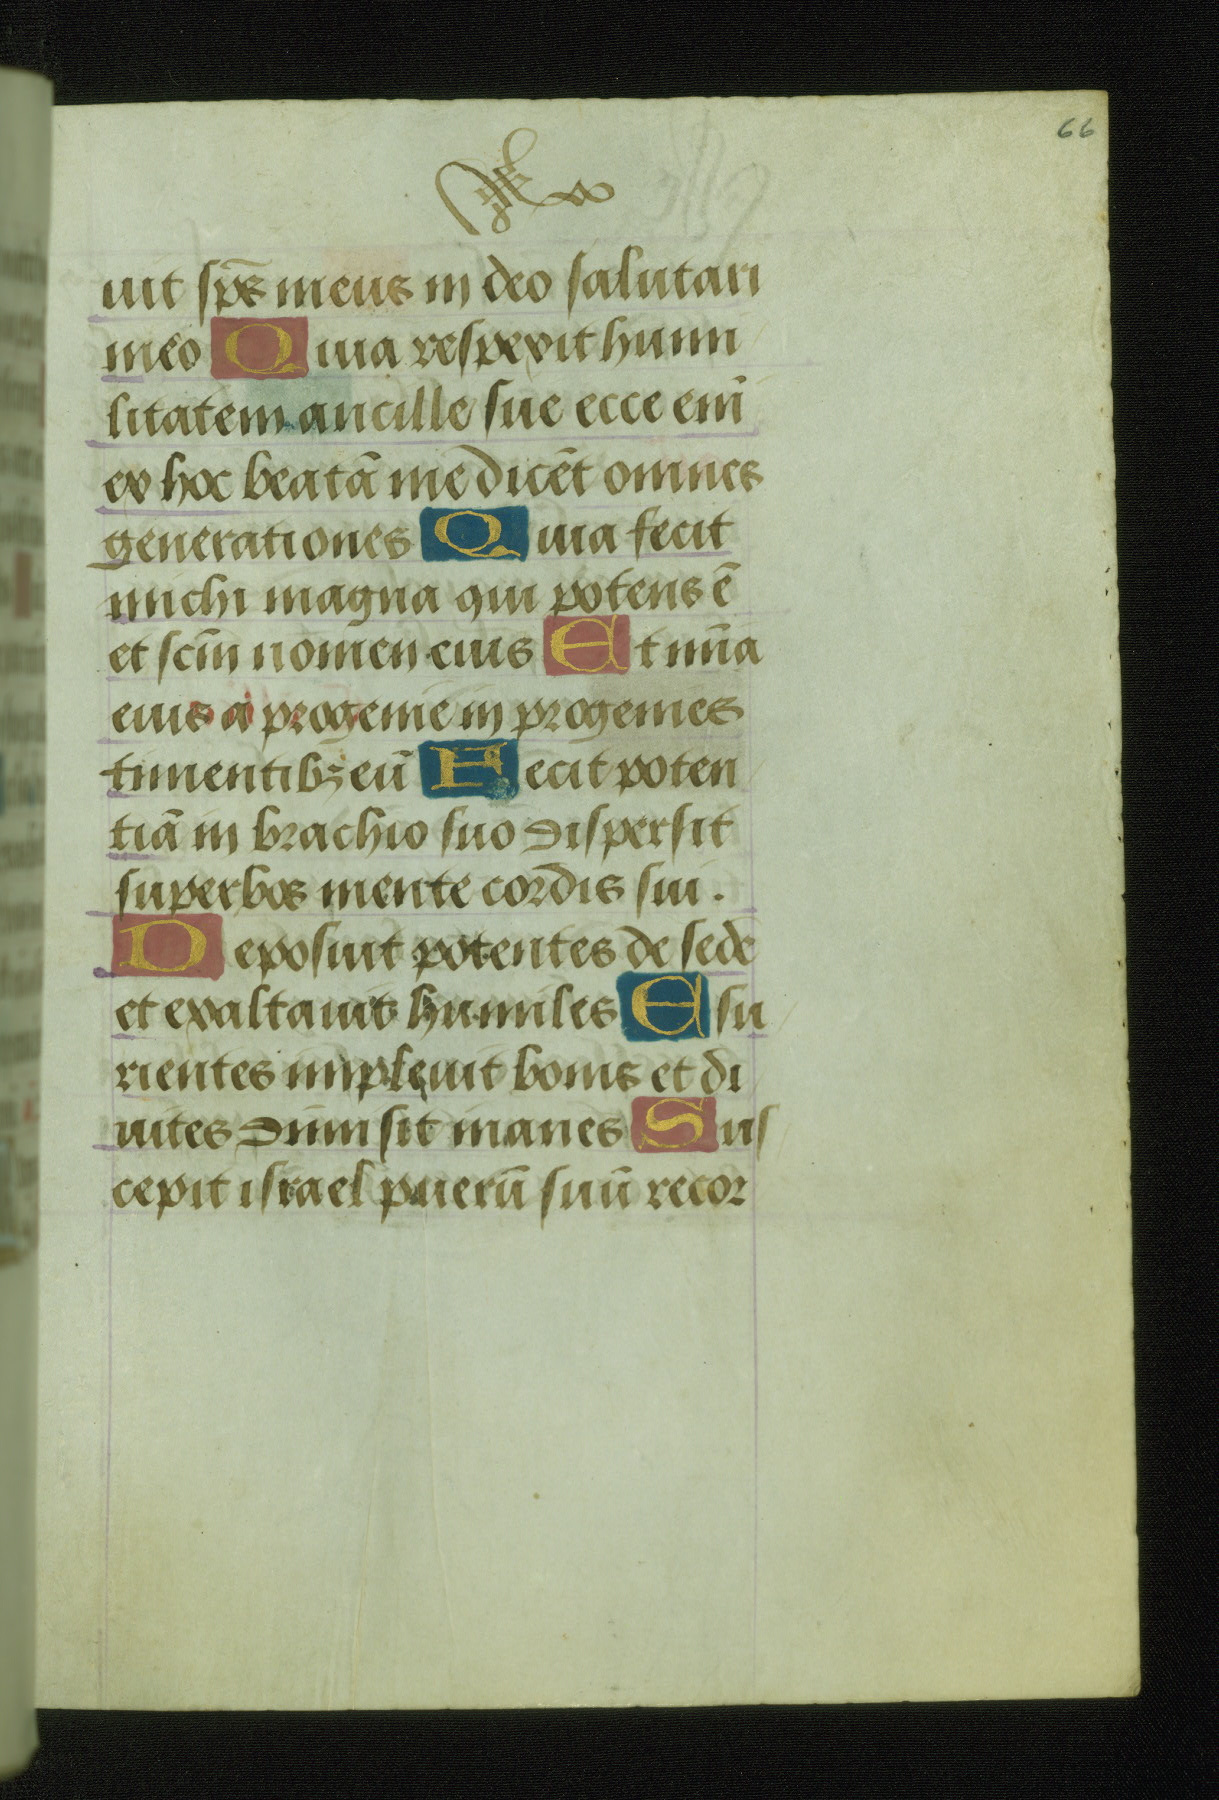 66
uit sp̄s meus in deo salutari
meo Quia respexit humi
litatem ancille sue ecce eni̅
ex hoc beatā me dicēt omnes
generationes Quia fecit
michi magna qui potens ē
et scm̄ nomen eius Et mīa
eius a progenie in progenies
timentibꝫ eū Fecit poten
tiā in brachio suo dispersit
superbos mente cordis sui.
Deposuit potentes de sede
et exaltauit humiles Esu
rientes impleuit bonis et di
uites dimisit inanes Sus
cepit israel puerū suū recor